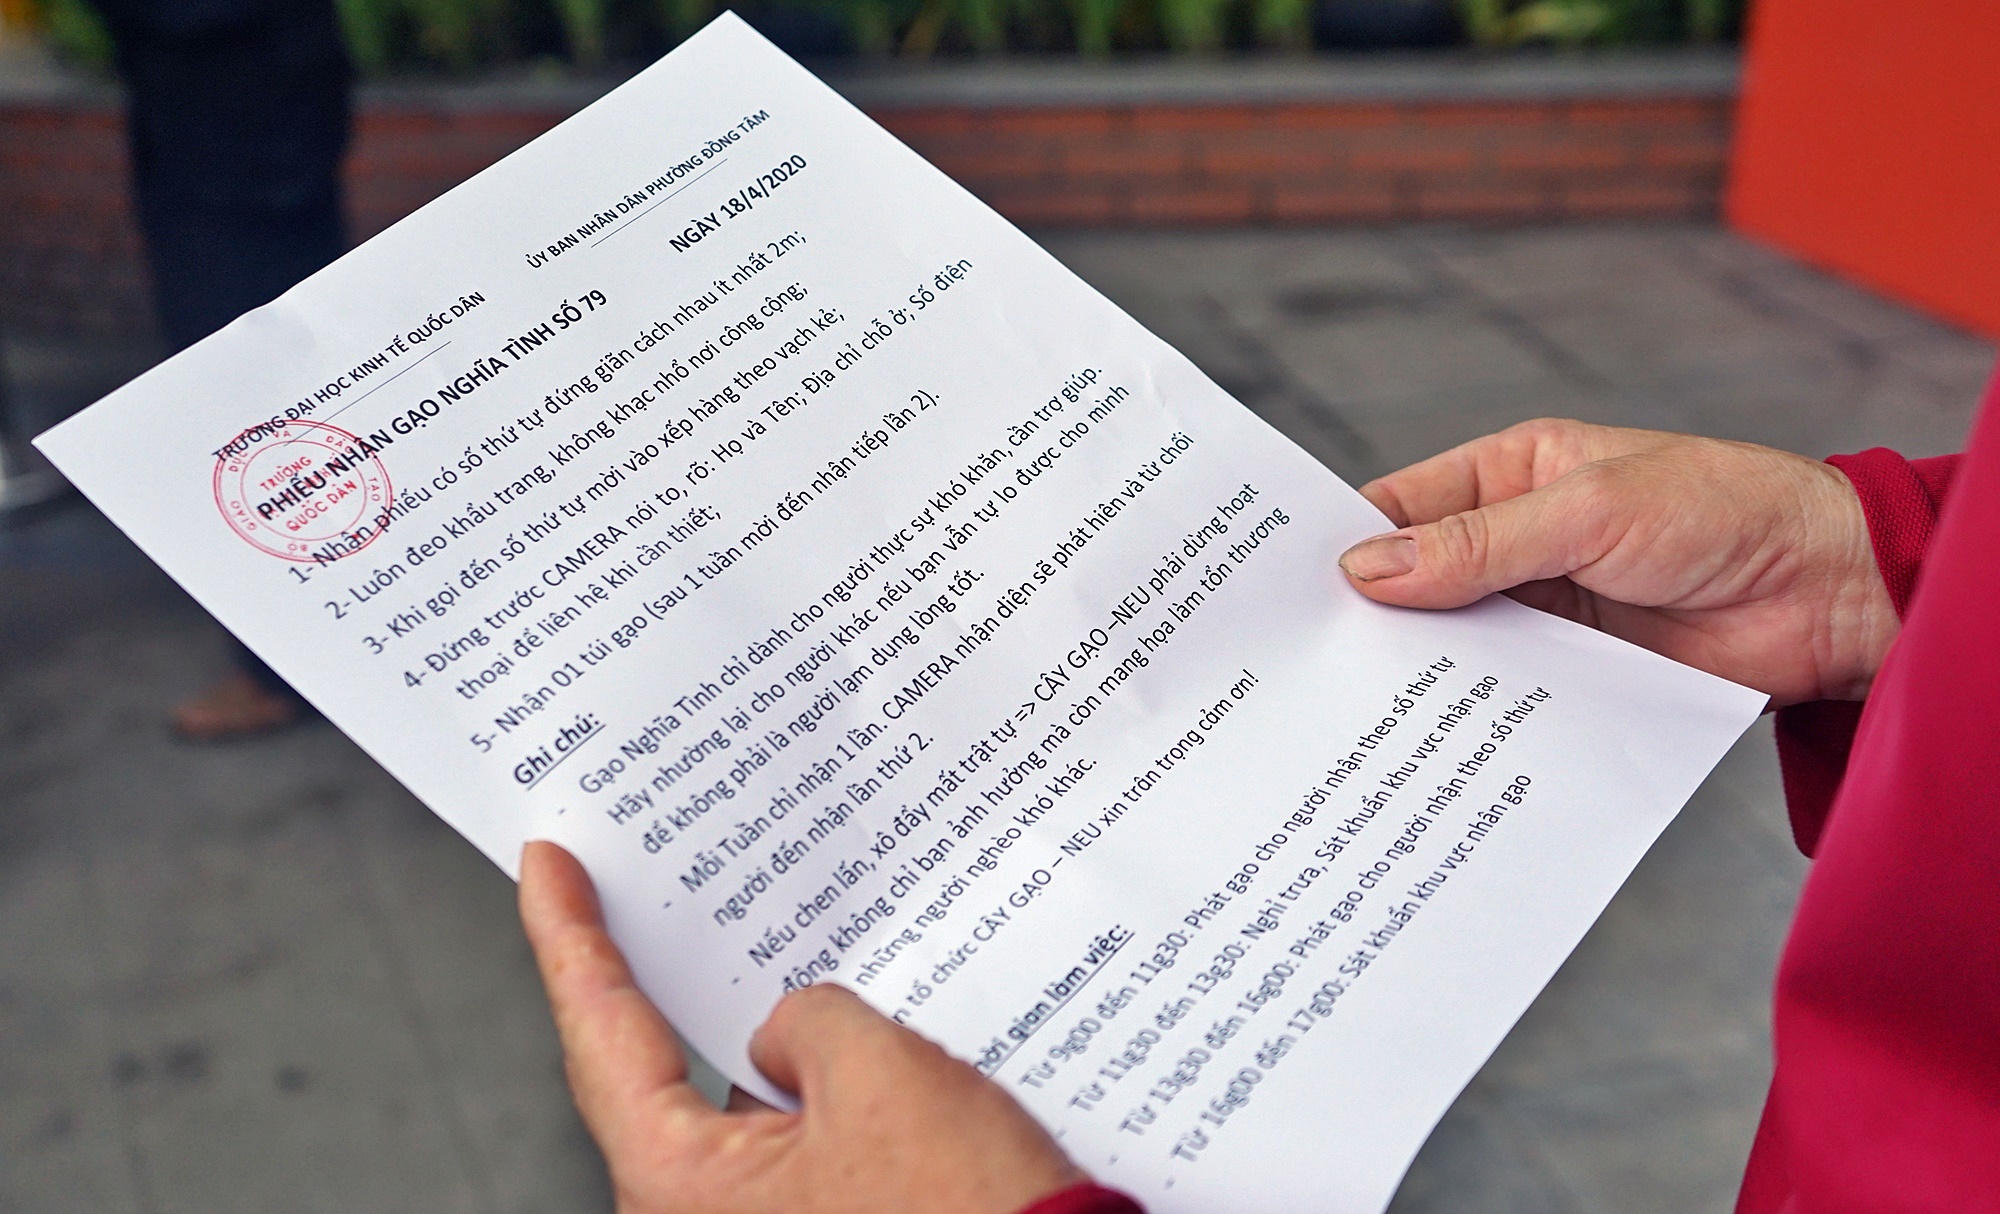 TRƯỜNG ĐẠI HỌC KINH TẾ QUỐC DÂN
ỦY BAN NHÂN DÂN PHƯỜNG ĐỒNG TÂM
PHIẾU NHẬN GẠO NGHĨA TÌNH SỐ 79
NGÀY 18/4/2020
TRƯỜNG
QUỐC DÂN
1- Nhận phiếu có số thứ tự đứng giãn cách nhau ít nhất 2m;
2- Luôn đeo khẩu trang, không khạc nhổ nơi công cộng;
3- Khi gọi đến số thứ tự mời vào xếp hàng theo vạch kẻ;
4- Đứng trước CAMERA nói to, rõ: Họ và Tên; Địa chỉ chỗ ở; Số điện
thoại để liên hệ khi cần thiết;
5- Nhận 01 túi gạo (sau 1 tuần mời đến nhận tiếp lần 2).
Ghi chú:
- Gạo Nghĩa Tình chỉ dành cho người thực sự khó khăn, cần trợ giúp.
Hãy nhường lại cho người khác nếu bạn vẫn tự lo được cho mình
để không phải là người lạm dụng lòng tốt.
- Mỗi Tuần chỉ nhận 1 lần. CAMERA nhận diện sẽ phát hiện và từ chối
người đến nhận lần thứ 2.
- Nếu chen lấn, xô đẩy mất trật tự => CÂY GẠO –NEU phải dừng hoạt
động không chỉ bạn ảnh hưởng mà còn mang họa làm tổn thương
những người nghèo khó khác.
tổ chức CÂY GẠO – NEU xin trân trọng cảm ơn!
gian làm việc:
- Từ 9g00 đến 11g30: Phát gạo cho người nhận theo số thứ tự
- Từ 11g30 đến 13g30: Nghỉ trưa, Sát khuẩn khu vực nhận gạo
- Từ 13g30 đến 16g00: Phát gạo cho người nhận theo số thứ tự
- Từ 16g00 đến 17g00: Sát khuẩn khu vực nhận gạo